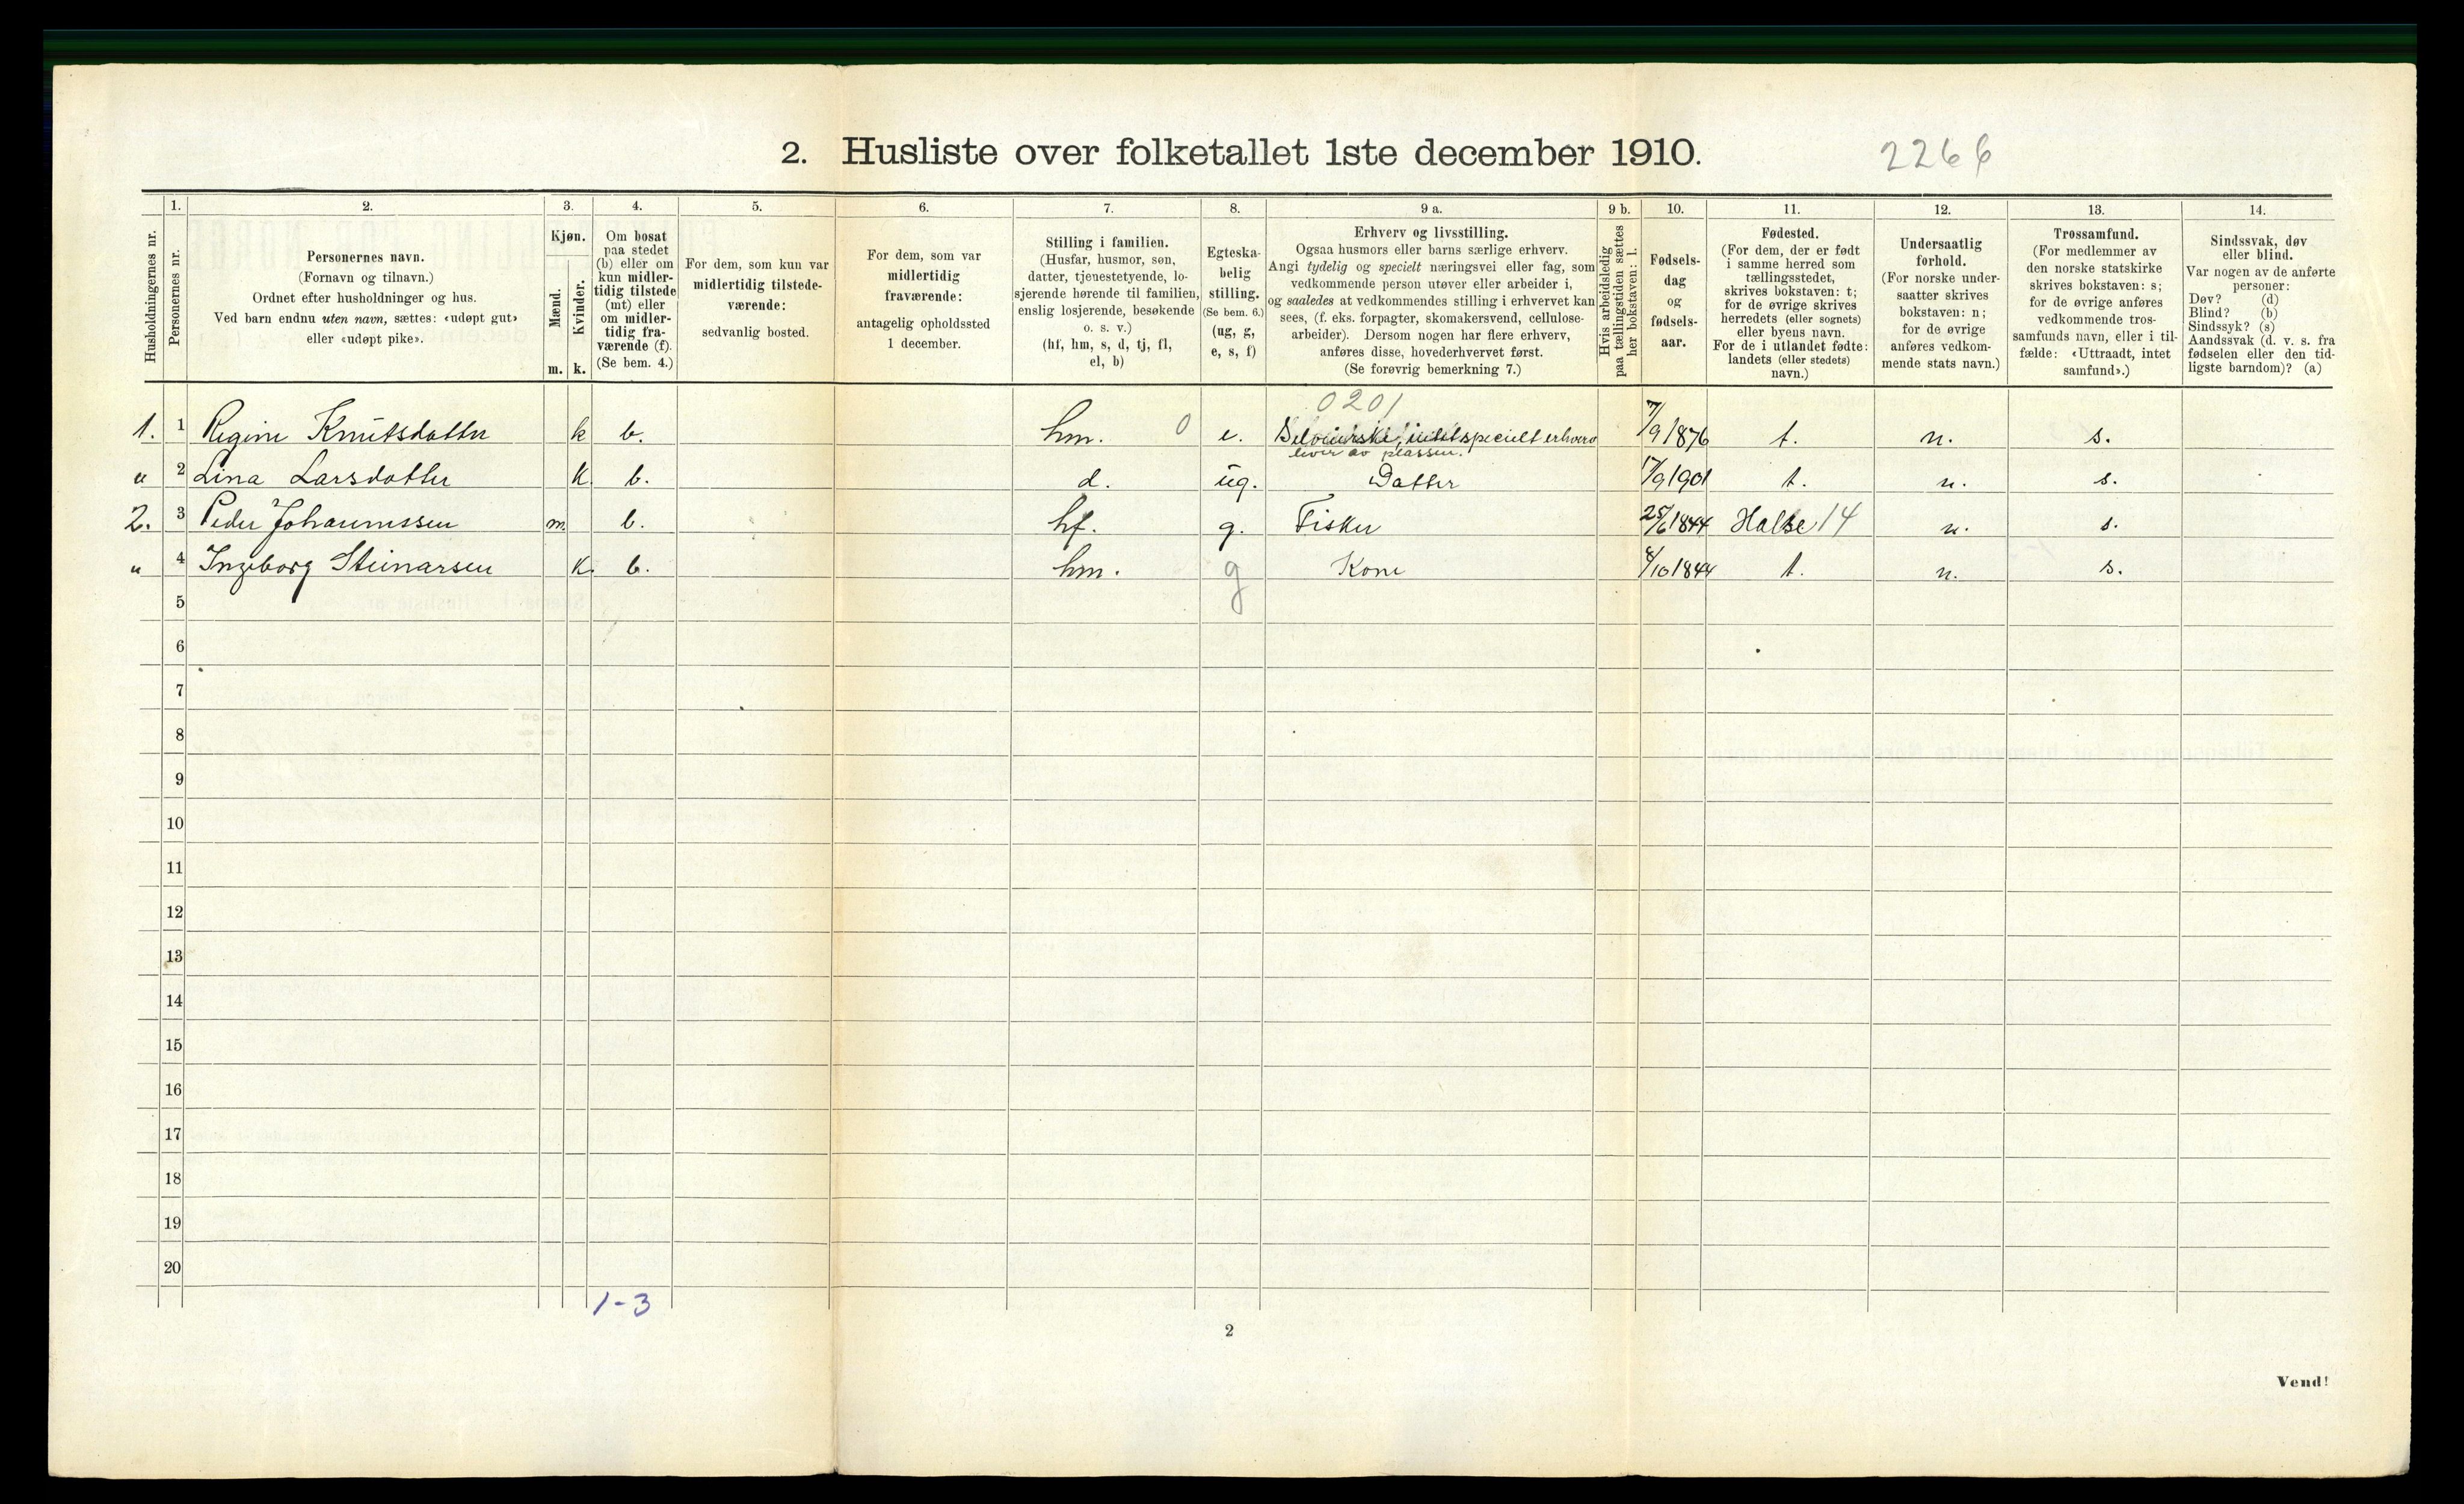 2. Husliste over folketallet 1ste december 1910. 2266
Husholdningernes nr.
1.
Personernes nr.
2.
Personernes navn.
(Fornavn og tilnavn.)
Ordnet efter husholdninger og hus.
Ved barn endnu uten navn, sættes: «udøpt gut»
eller «udøpt pike».
3.
Kjøn.
Mænd.
Kvinder.
m. k.
4.
Om bosat
paa stedet
(b) eller om
kun midler-
tidig tilstede
(mt) eller
om midler-
tidig fra-
værende (f).
(Se bem. 4.)
5.
For dem, som kun var
midlertidig tilstede-
værende:
sedvanlig bosted.
6.
For dem, som var
midlertidig
fraværende:
antagelig opholdssted
1 december.
7.
Stilling i familien.
(Husfar, husmor, søn,
datter, tjenestetyende, lo-
sjerende hørende til familien,
enslig losjerende, besøkende
o. s. v.)
(hf, hm, s, d, tj, fl,
el, b)
8.
Egteska-
belig
stilling.
(Se bem. 6.)
(ug, g,
e, s, f)
9 a.
Erhverv og livsstilling.
Ogsaa husmors eller barns særlige erhverv.
Angi tydelig og specielt næringsvei eller fag, som
vedkommende person utøver eller arbeider i,
og saaledes at vedkommendes stilling i erhvervet kan
sees, (f. eks. forpagter, skomakersvend, cellulose-
arbeider). Dersom nogen har flere erhverv,
anføres disse, hovederhvervet først.
(Se forøvrig bemerkning 7.)
9 b.
Hvis arbeidsledig
paa tællingstiden sættes
her bokstaven: l.
10.
Fødsels-
dag
og
fødsels-
aar.
11.
Fødested.
(For dem, der er født
i samme herred som
tællingsstedet,
skrives bokstaven: t;
for de øvrige skrives
herredets (eller sognets)
eller byens navn.
For de i utlandet fødte:
landets (eller stedets)
navn.)
12.
Undersaatlig
forhold.
(For norske under-
saatter skrives
bokstaven: n;
for de øvrige
anføres vedkom-
mende stats navn.)
13.
Trossamfund.
(For medlemmer av
den norske statskirke
skrives bokstaven: s;
for de øvrige anføres
vedkommende tros-
samfunds navn, eller i til-
fælde: «Uttraadt, intet
samfund».)
14.
Sindssvak, døv
eller blind.
Var nogen av de anførte
personer:
Døv? (d)
Blind? (b)
Sindssyk? (s)
Aandssvak (d. v. s. fra
fødselen eller den tid-
ligste barndom)? (a)
0201
1. 1 Regine Knutsdatter k b. hm. 0 e. specielt erhverv 7/9 1876 t. n. s.
lever av plassen.
" 2 Lina Larsdatter k b. d. ug. Datter 17/9 1901 t. n. s.
2. 3 Peder Johannssen m b. hf. g. Fisker 25/6 1844 Halse 14 n. s.
" 4 Ingeborg Steinarsen k. b. hm. g Kone 4/10 1844 t. n. s.
5
6
7
8
9
10
11
12
13
14
15
16
17
18
19
20
1-3
2
Vend!